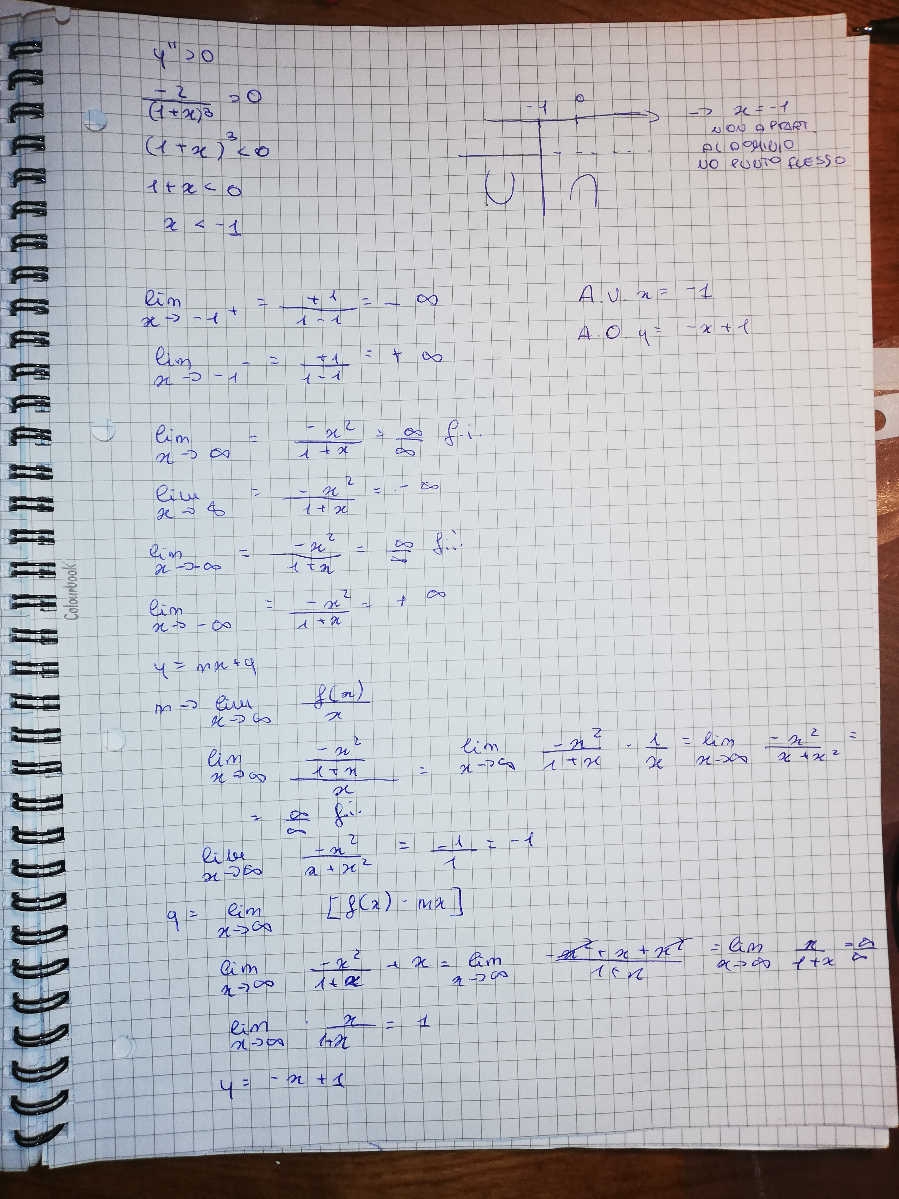 y'' > 0
-2/(1+x)³ > 0
(1+x)³ < 0
1+x < 0
x < -1
-1 0
→ x = -1
NON APPART.
AL DOMINIO
NO PUNTO FLESSO
lim x→-1⁺ = +1/1-1 = -∞
A.V. x = -1
lim x→-1⁻ = +1/1-1 = +∞
A.O. y = -x+1
lim x→∞ = -x²/1+x = ∞/∞ f.i.
lim x→∞ = -x²/1+x = -∞
lim x→-∞ = -x²/1+x = ∞/∞ f.i.
lim x→-∞ = -x²/1+x = +∞
y = mx+q
m → lim x→∞ f(x)/x
lim x→∞ (-x²/1+x)/x = lim x→∞ -x²/1+x · 1/x = lim x→∞ -x²/x+x² =
= ∞/∞ f.i.
lim x→∞ -x²/x+x² = -1/1 = -1
q = lim x→∞ [f(x) - mx]
lim x→∞ -x²/1+x + x = lim x→∞ -x²+x+x²/1+x = lim x→∞ x/1+x = ∞/∞
lim x→∞ x/1+x = 1
y = -x+1
Colourbook